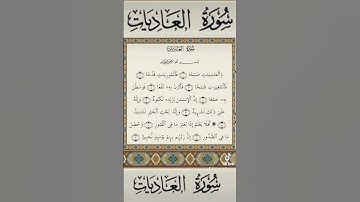 سُورَةُ الْعَادِيَاتِ
سُورَةُ العَادِيَاتِ
بِسْمِ اللَّهِ الرَّحْمَٰنِ الرَّحِيمِ
وَالْعَادِيَاتِ ضَبْحًا ۝ فَالْمُورِيَاتِ قَدْحًا ۝
فَالْمُغِيرَاتِ صُبْحًا ۝ فَأَثَرْنَ بِهِ نَقْعًا ۝ فَوَسَطْنَ
بِهِ جَمْعًا ۝ إِنَّ الْإِنسَانَ لِرَبِّهِ لَكَنُودٌ ۝ وَإِنَّهُ
عَلَىٰ ذَٰلِكَ لَشَهِيدٌ ۝ وَإِنَّهُ لِحُبِّ الْخَيْرِ لَشَدِيدٌ
۝ ۞ أَفَلَا يَعْلَمُ إِذَا بُعْثِرَ مَا فِي الْقُبُورِ ۝ وَحُصِّلَ
مَا فِي الصُّدُورِ ۝ إِنَّ رَبَّهُم بِهِمْ يَوْمَئِذٍ لَّخَبِيرٌ ۝
سُورَةُ الْعَادِيَاتِ